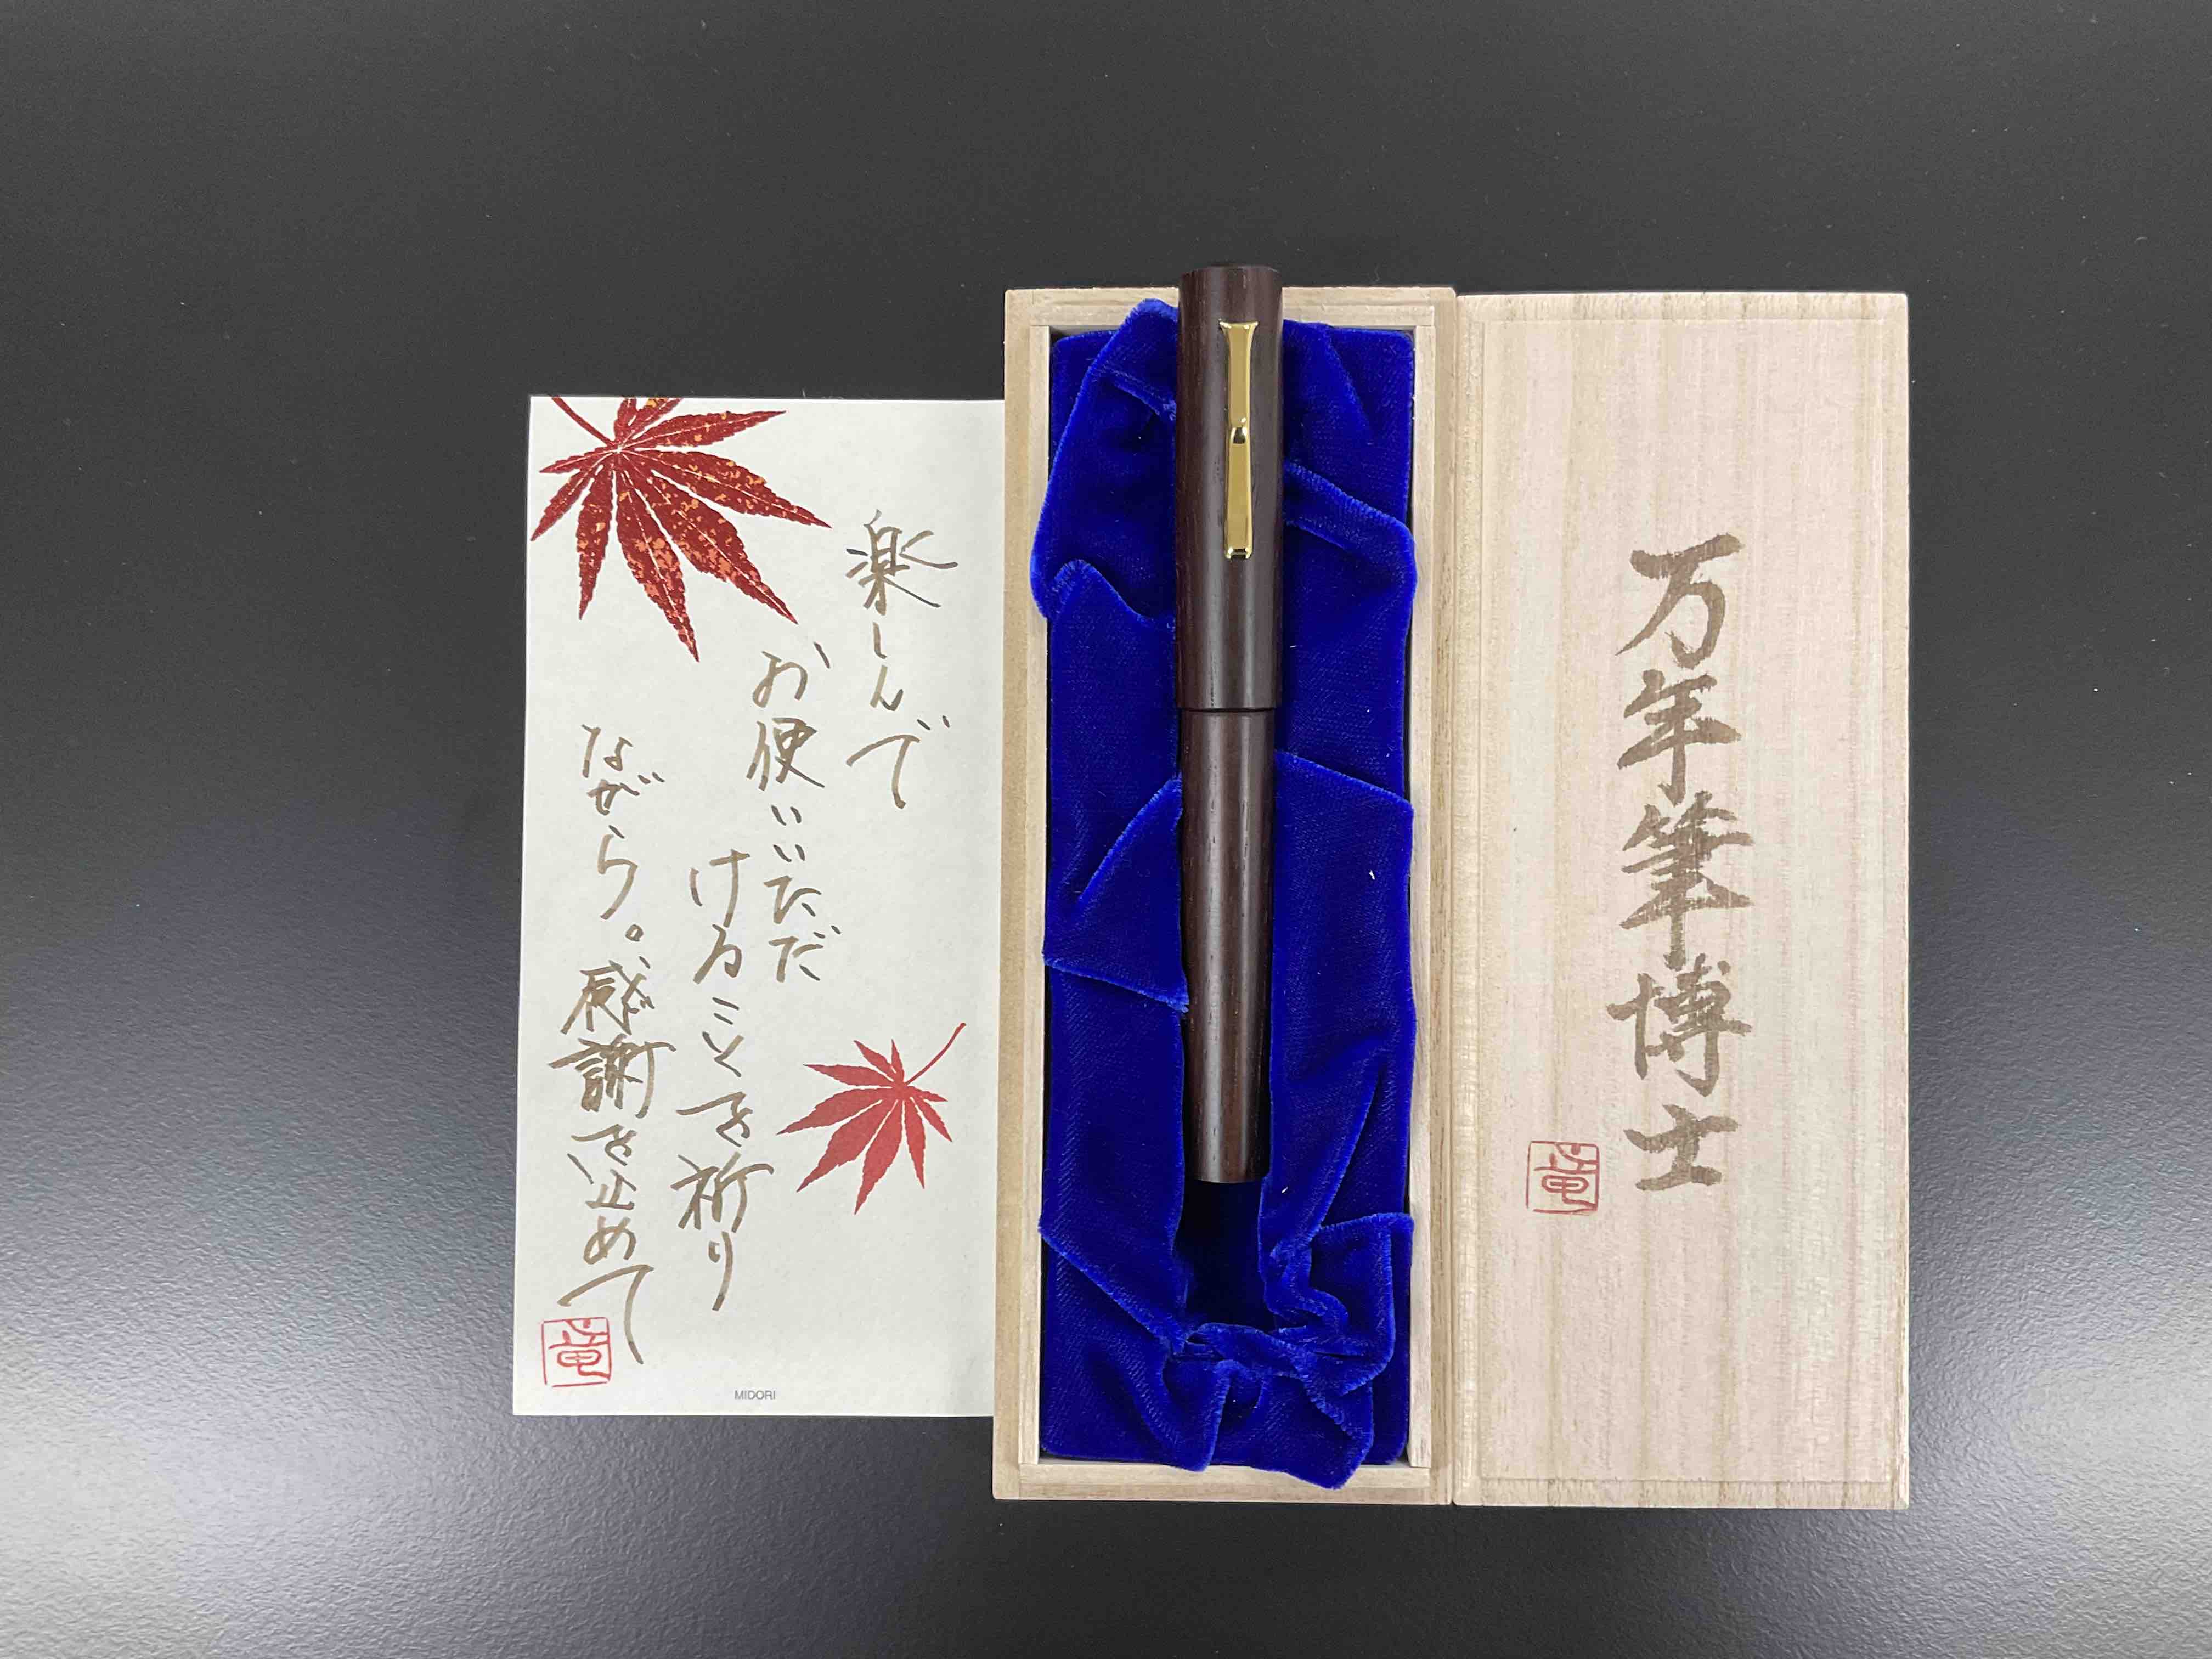 楽しんで
お使いいただ
けることを祈り
ながら。感謝を込めて
竜
MIDORI
万年筆博士
竜